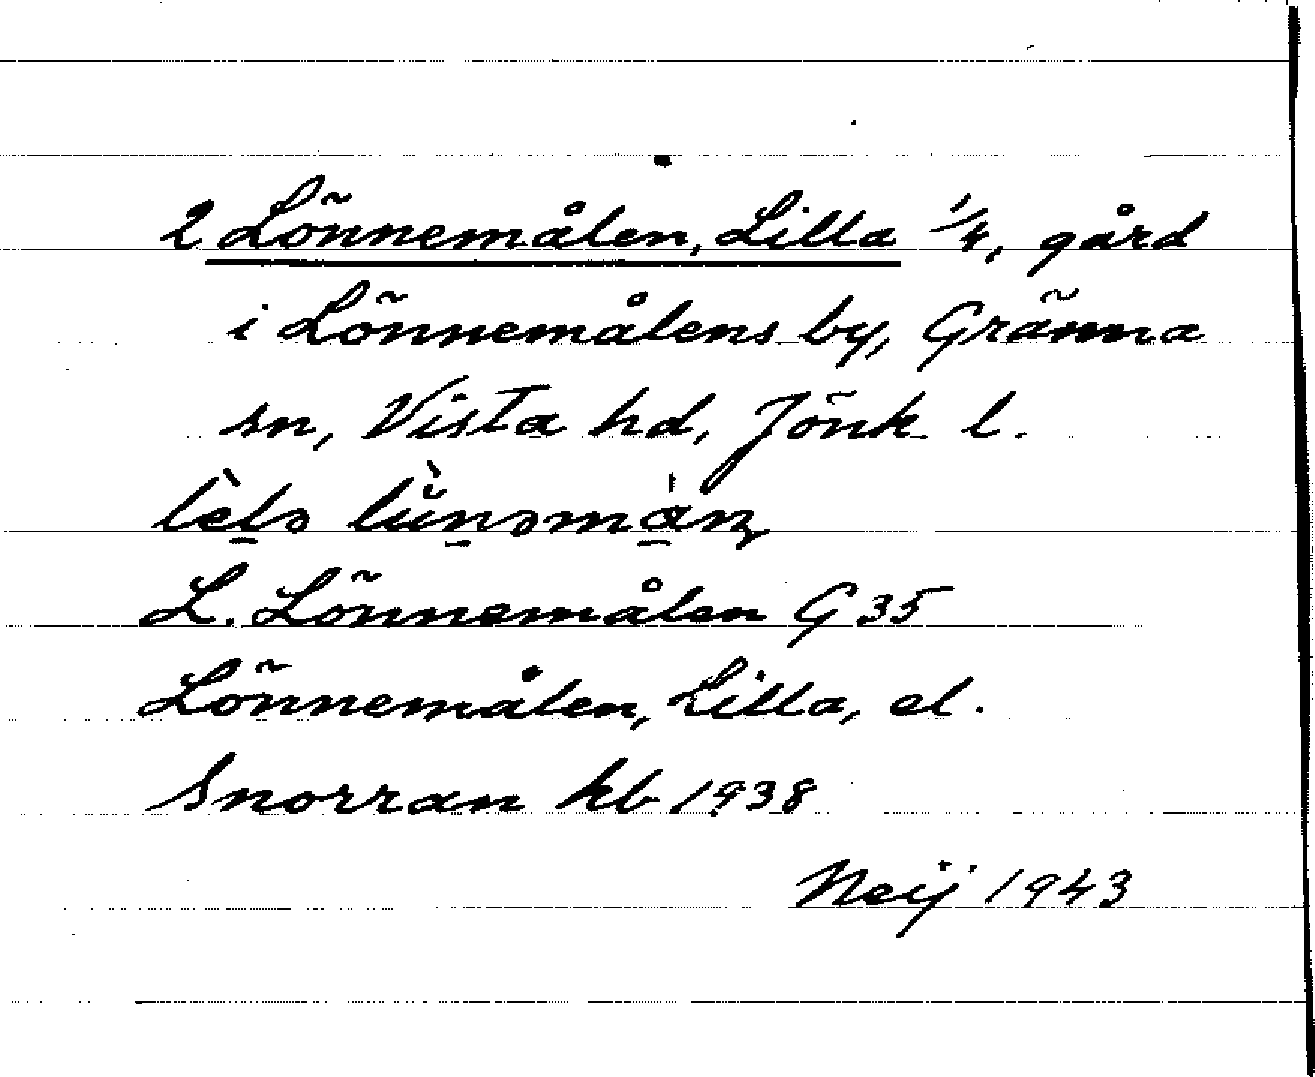 2 Lönnemålen, Lilla 1/4, gård
i Lönnemålens by, Gränna
sn, Vista hd, Jönk. l.
L. Lönnemålen G 35
Lönnemålen, Lilla, el.
Snorran kb 1938
Neij 1943